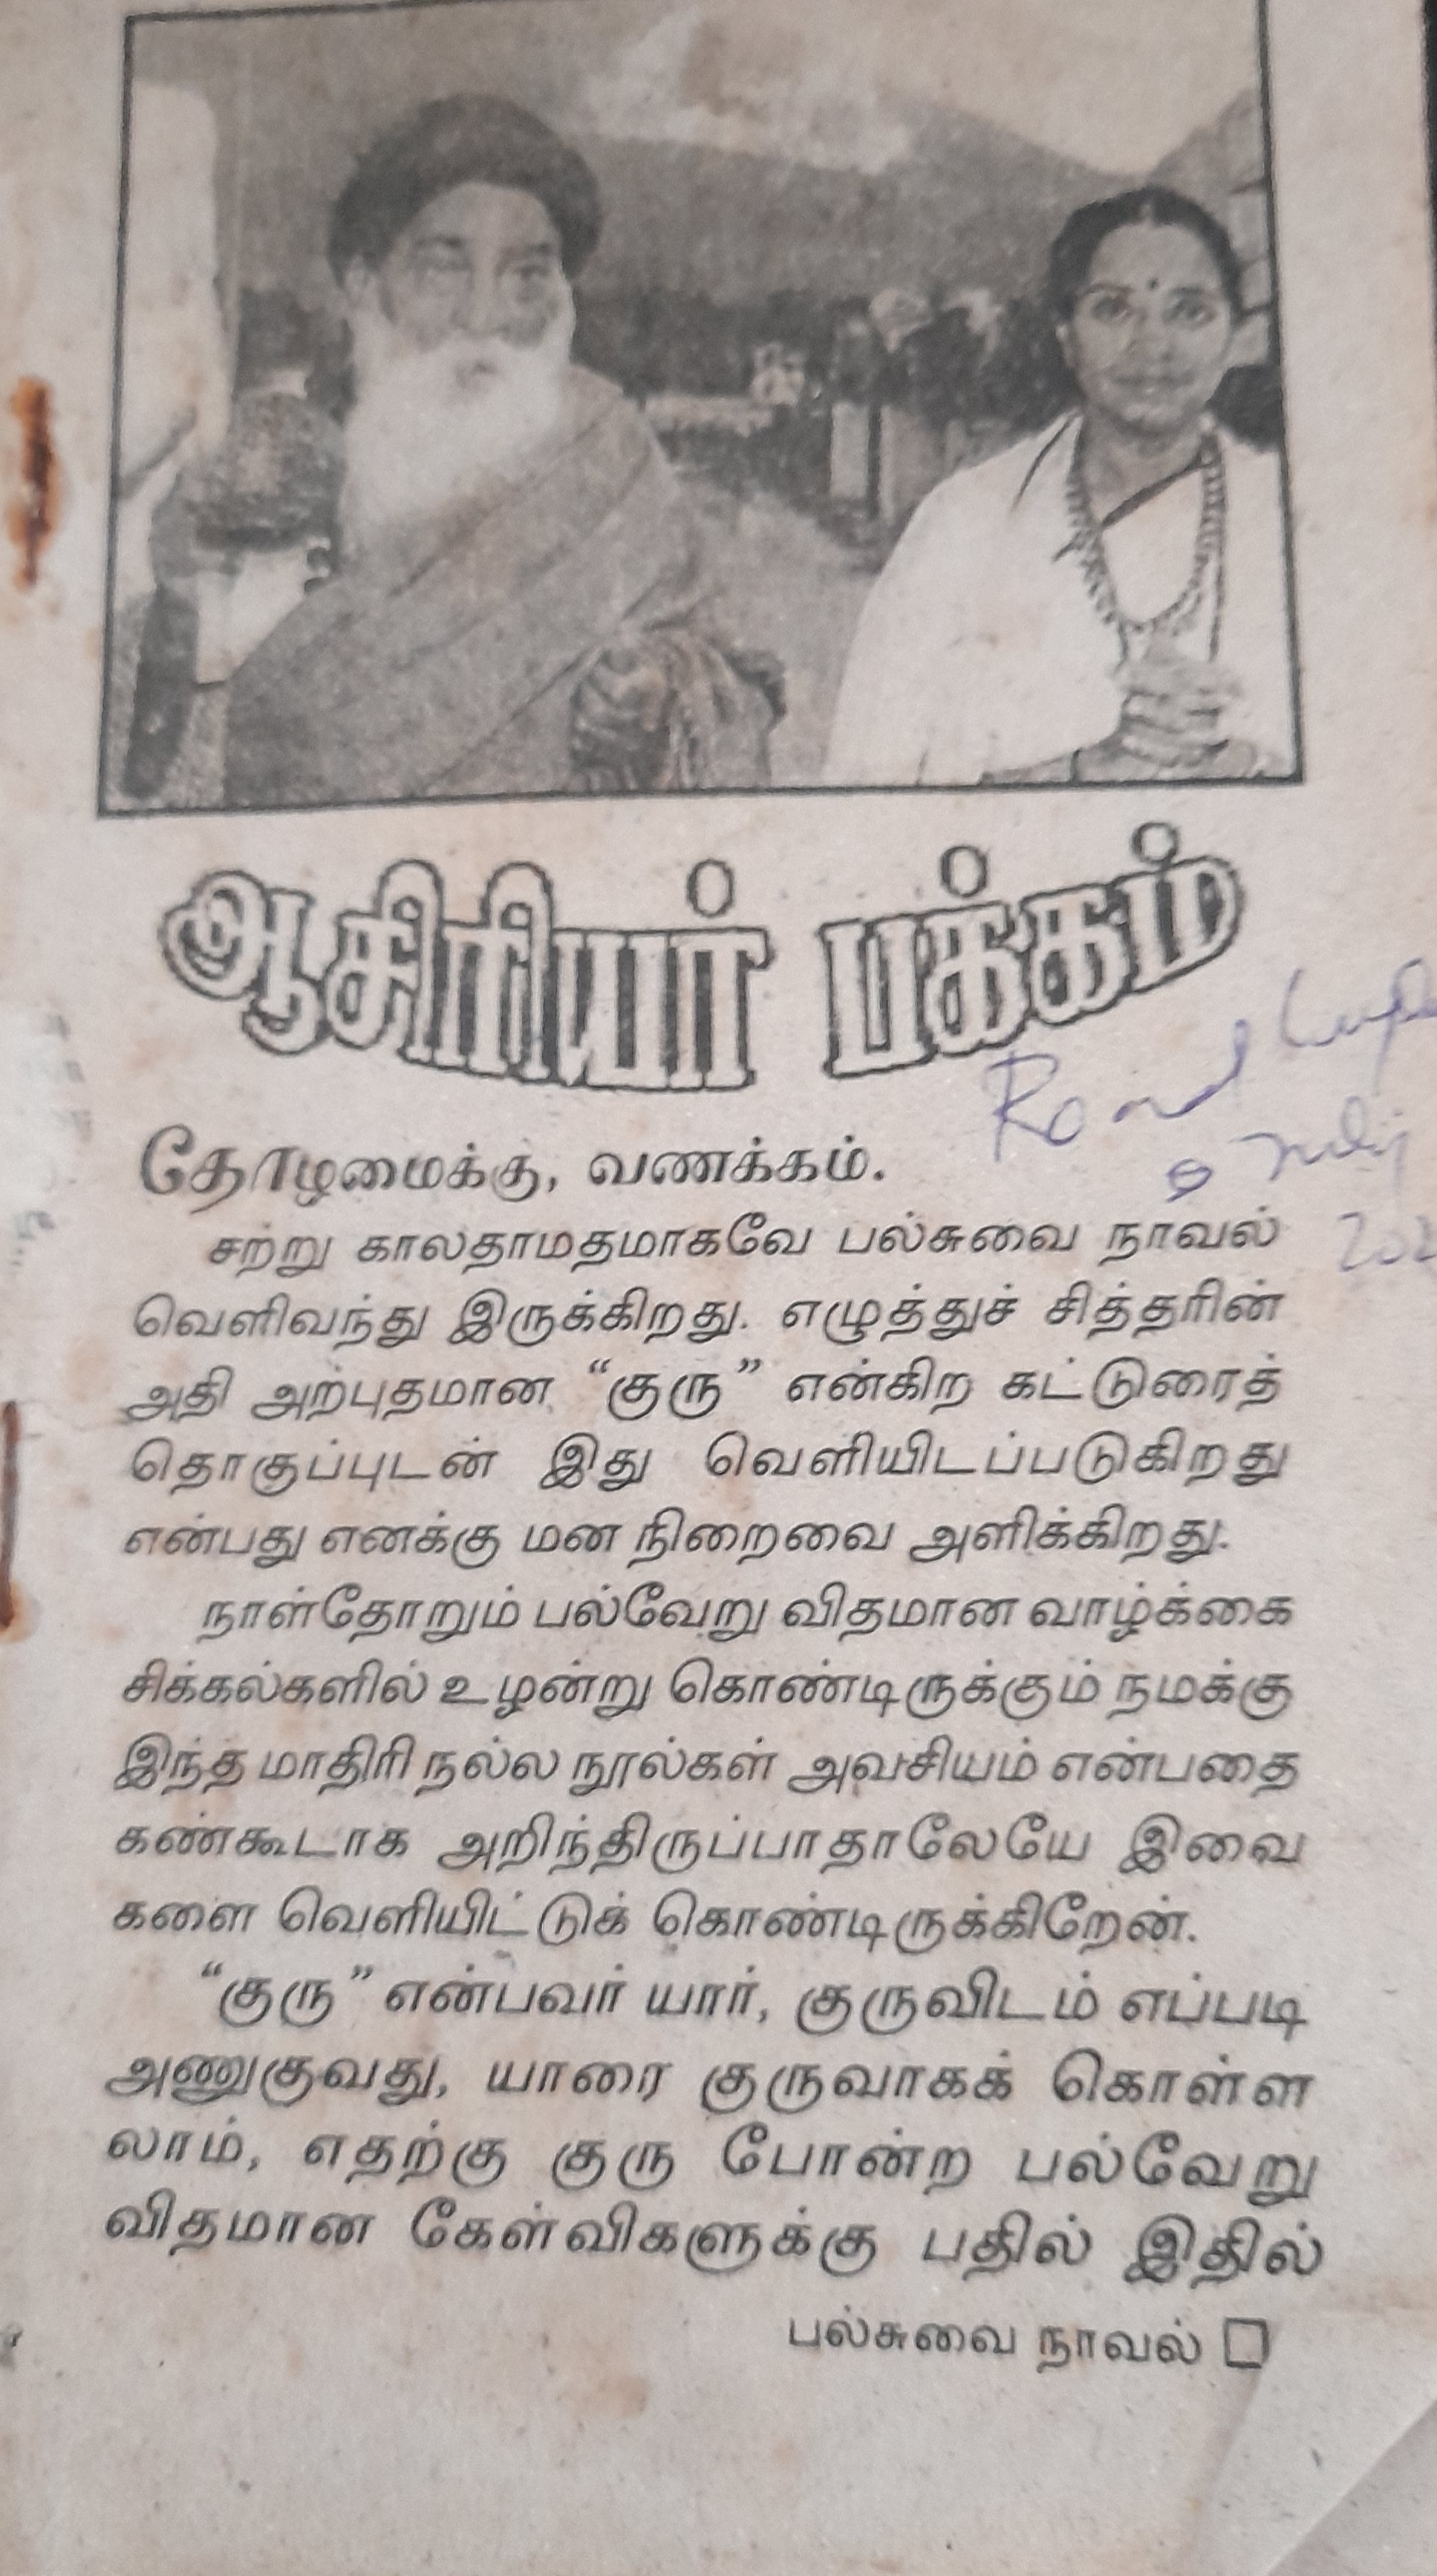 ஆசிரியர் பக்கம்
Read
தோழமைக்கு, வணக்கம்.
சற்று காலதாமதமாகவே பல்சுவை நாவல்
வெளிவந்து இருக்கிறது. எழுத்துச் சித்தரின்
அதி அற்புதமான “குரு” என்கிற கட்டுரைத்
தொகுப்புடன் இது வெளியிடப்படுகிறது
என்பது எனக்கு மன நிறைவை அளிக்கிறது.
நாள்தோறும் பல்வேறு விதமான வாழ்க்கை
சிக்கல்களில் உழன்று கொண்டிருக்கும் நமக்கு
இந்த மாதிரி நல்ல நூல்கள் அவசியம் என்பதை
கண்கூடாக அறிந்திருப்பாதாலேயே இவை
களை வெளியிட்டுக் கொண்டிருக்கிறேன்.
“குரு” என்பவர் யார், குருவிடம் எப்படி
அணுகுவது, யாரை குருவாகக் கொள்ள
லாம், எதற்கு குரு போன்ற பல்வேறு
விதமான கேள்விகளுக்கு பதில் இதில்
பல்சுவை நாவல்